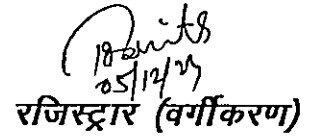 05/12/23
रजिस्ट्रार (वर्गीकरण)